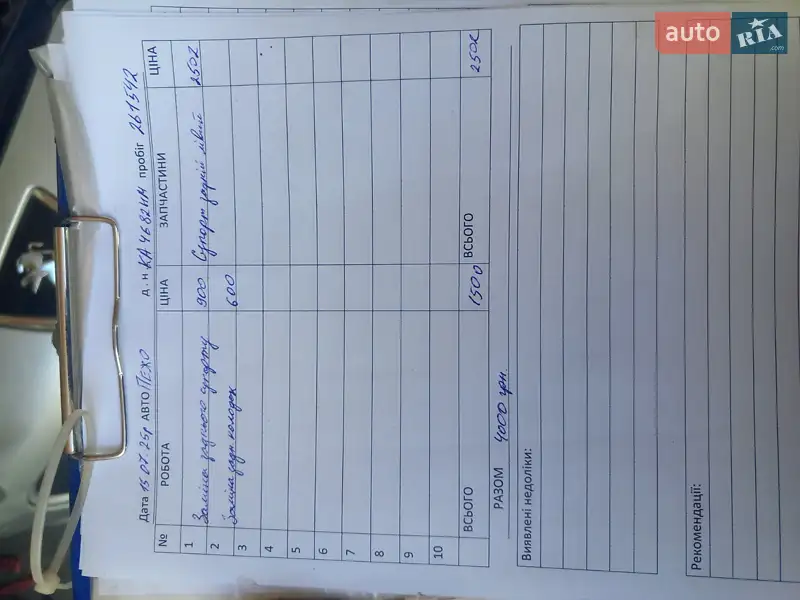 auto RIA.com
Дата 15 07. 25р АВТО ПЕЖО д . н КА4682ИА пробіг 261542
№ РОБОТА ЦІНА ЗАПЧАСТИНИ ЦІНА
1 Заміна заднього супорту 900 Супорт задній лівий 2502
2 Заміна задн колодок 600
3
4
5
6
7
8
9
10
ВСЬОГО 1500 ВСЬОГО 2502
РАЗОМ 4000 грн.
Виявлені недоліки:
Рекомендації: